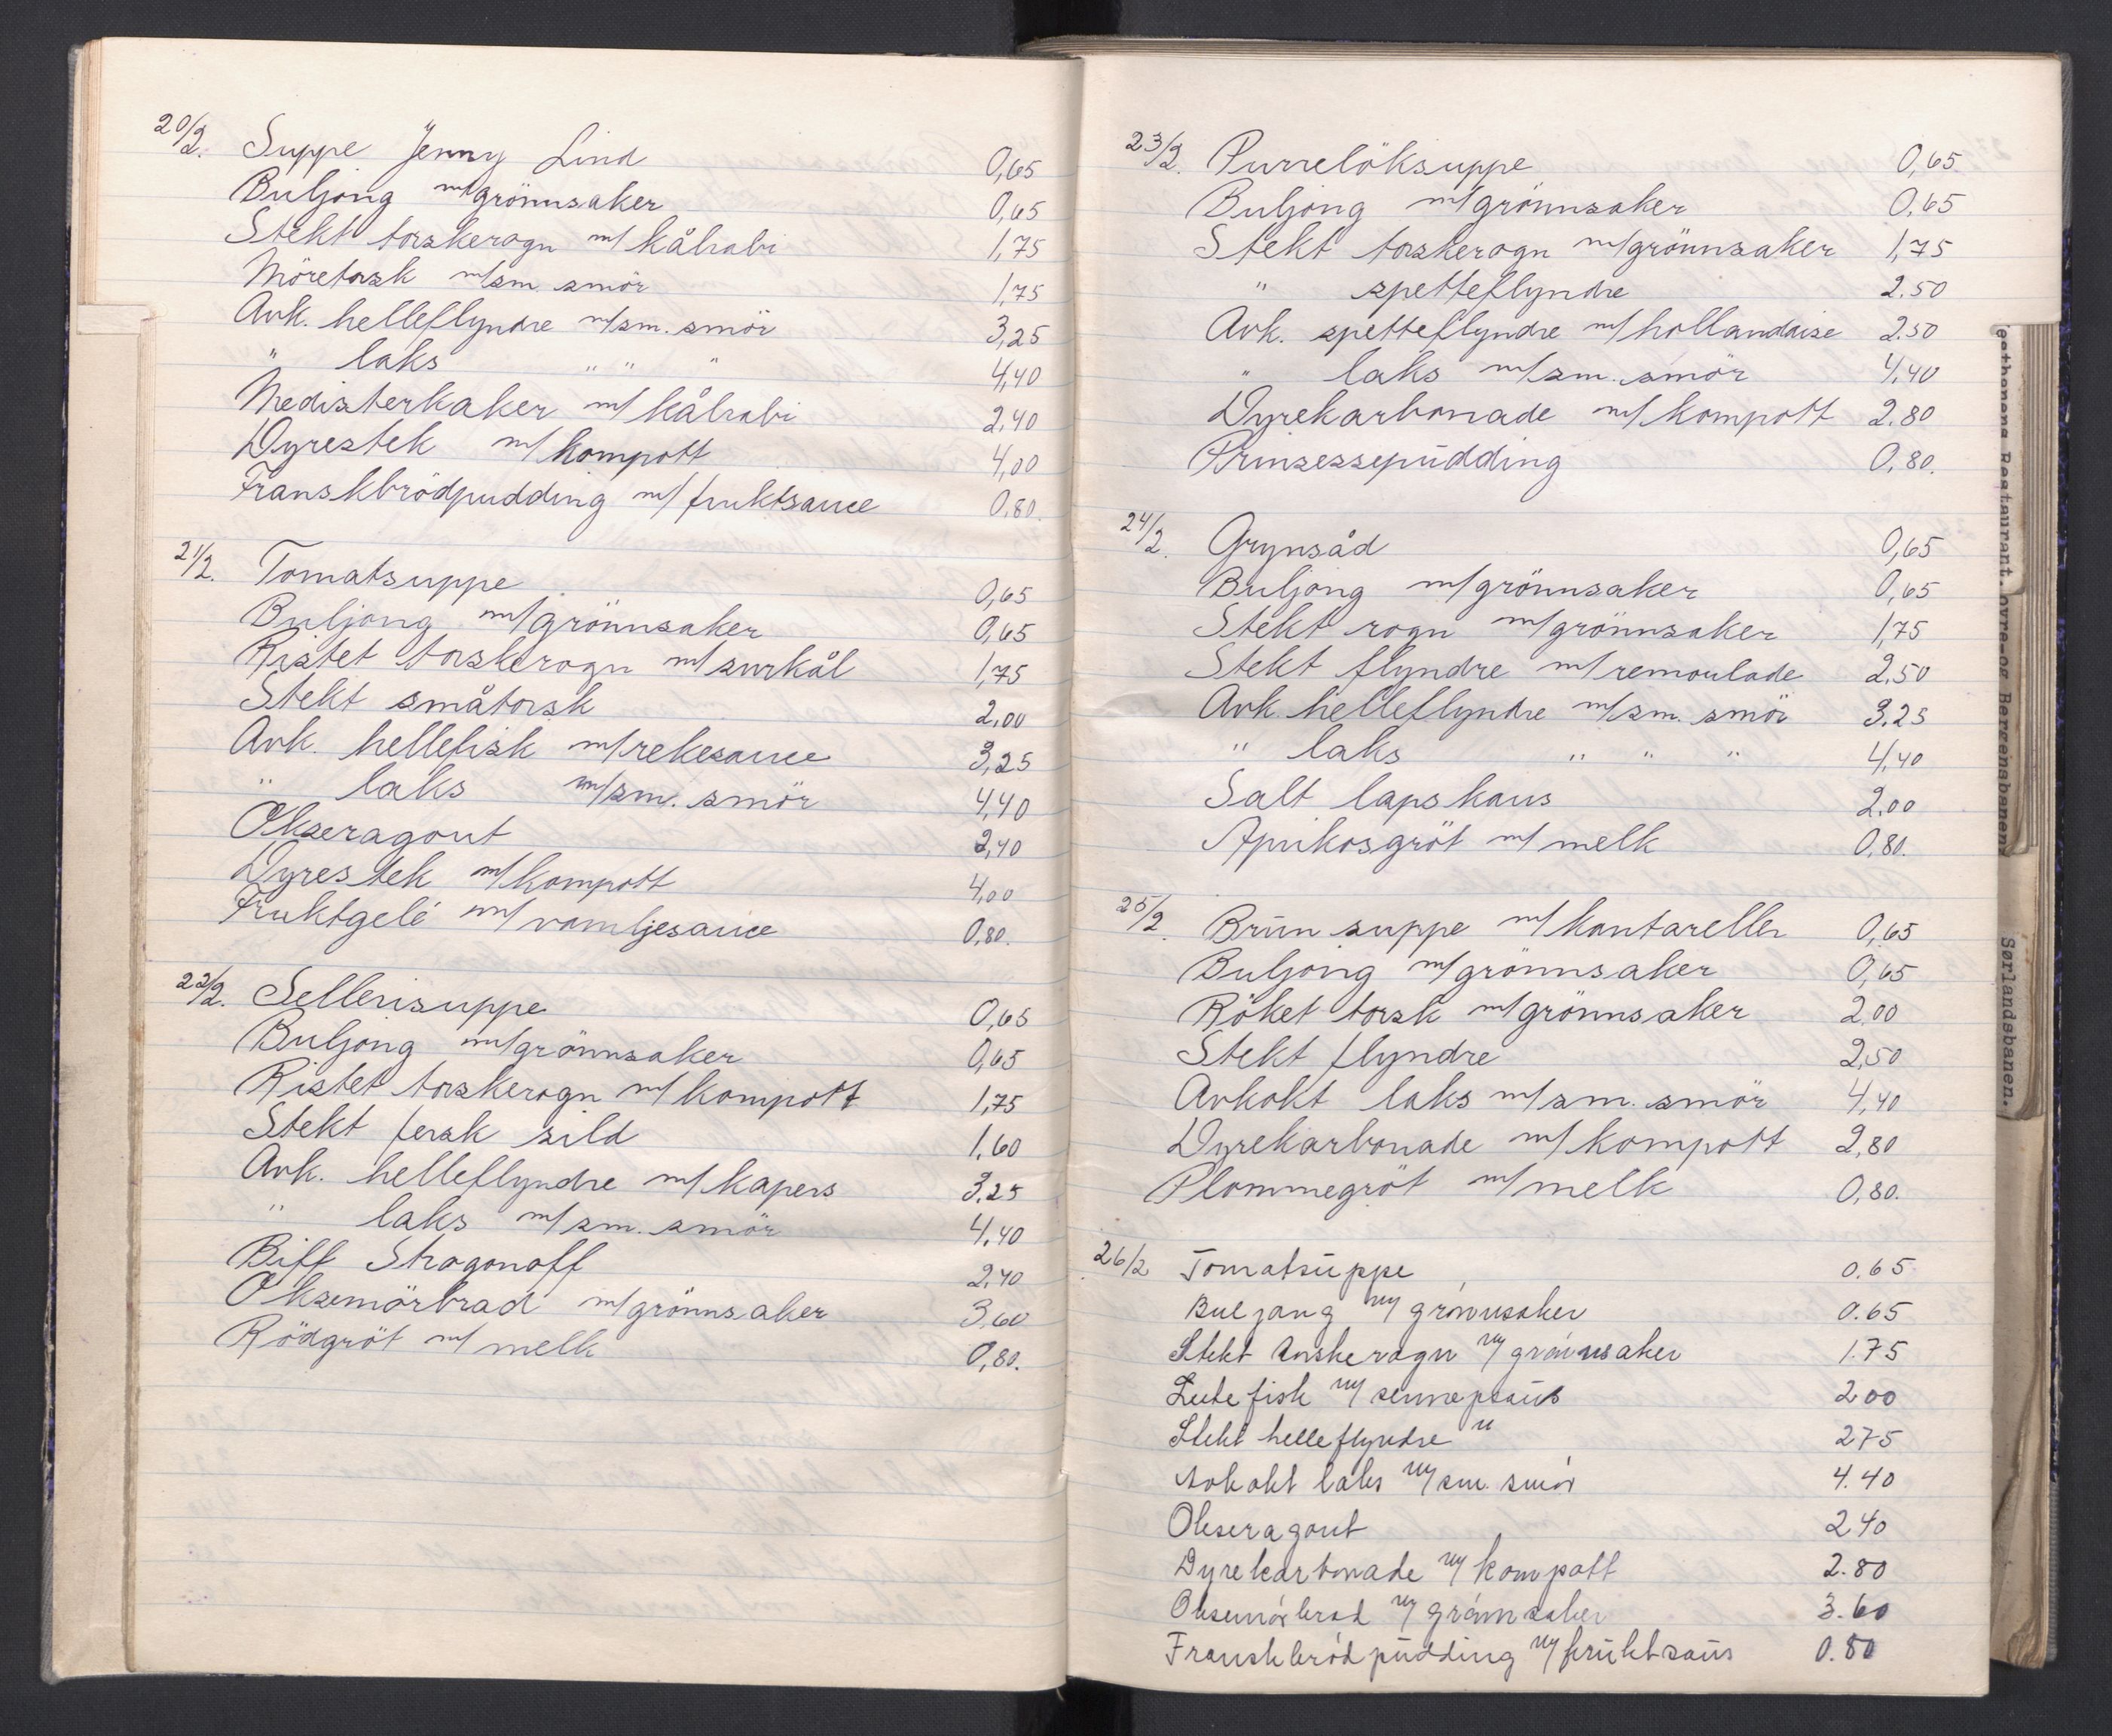 20/2. Suppe Jenny Lind 0,65
Buljong m/grönnsaker 0,65
Stekt torskerogn m/ kålrabi 1,75
Möretorsk m/sm. smör 1,75
Avk. helleflyndre m/sm. smör 3,25
" laks " " " 4,40
Medisterkaker m/ kålrabi 2,40
Dyrestek m/kompott 4,00
Franskbrödpudding m/ fruktsauce 0,80.
21/2. Tomatsuppe 0,65
Buljong m/grönnsaker 0,65
Ristet torskerogn m/ surkål 1,75
Stekt småtorsk 2,00
Avk. hellefisk m/rekesauce 3,25
" laks m/sm. smör 4,40
Okseragout 2,40
Dyrestek m/kompott 4,00
Fruktgelé m/ vaniljesauce 0,80.
22/2. Sellerisuppe 0,65
Buljong m/grönnsaker 0,65
Ristet torskerogn m/ kompott 1,75
Stekt fersk sild 1,60
Avk. helleflyndre m/ kapers 3.25
" laks m/ sm. smör 4.40
Biff Strogonoff 2.40
Oksemörbrad m/grönnsaker 3,60
Rödgröt m/ melk 0,80.
23/2. Purrelöksuppe 0,65
Buljong m/grönnsaker 0,65
Stekt torskerogn m/grönnsaker 1,75
" spetteflyndre 2.50
Avk. spetteflyndre m/hollandaise 2.50
" laks m/sm. smör 4,40
Dyrekarbonade m/ kompott 2.80
Prinsessepudding 0,80.
24/2. Grynsåd 0,65
Buljong m/grönnsaker 0,65
Stekt rogn m/grönnsaker 1,75
Stekt flyndre m/remoulade 2,50
Avk. helleflyndre m/sm. smör 3.25
" laks " " " 4,40
Salt lapskaus 2,00
Aprikosgröt m/ melk 0,80.
25/2. Brun suppe m/kantareller 0,65
Buljong m/grönnsaker 0,65
Röket torsk m/grönnsaker 2,00
Stekt flyndre 2,50
Avkokt laks m/sm. smör 4,40
Dyrekarbonade m/ kompott 2,80
Plommegröt m/melk 0,80.
26/2 Tomatsuppe 0.65
Buljong m/ grönnsaker 0.65
Stekt torskerogn m/ grönnsaker 1.75
Lutefisk m/ sennepsaus 2.00
Stekt helleflyndre " 2.75
Avkokt laks m/ sm. smör 4.40
Okseragout 2.40
Dyrekarbonade m/ kompott 2.80
Oksemörbrad m/ grönnsaker 3.60
Franskbrödpudding m/ fruktsaus 0.80
Restaurant. Øvre-og Bergensbanen.
Sørlandsbanen.